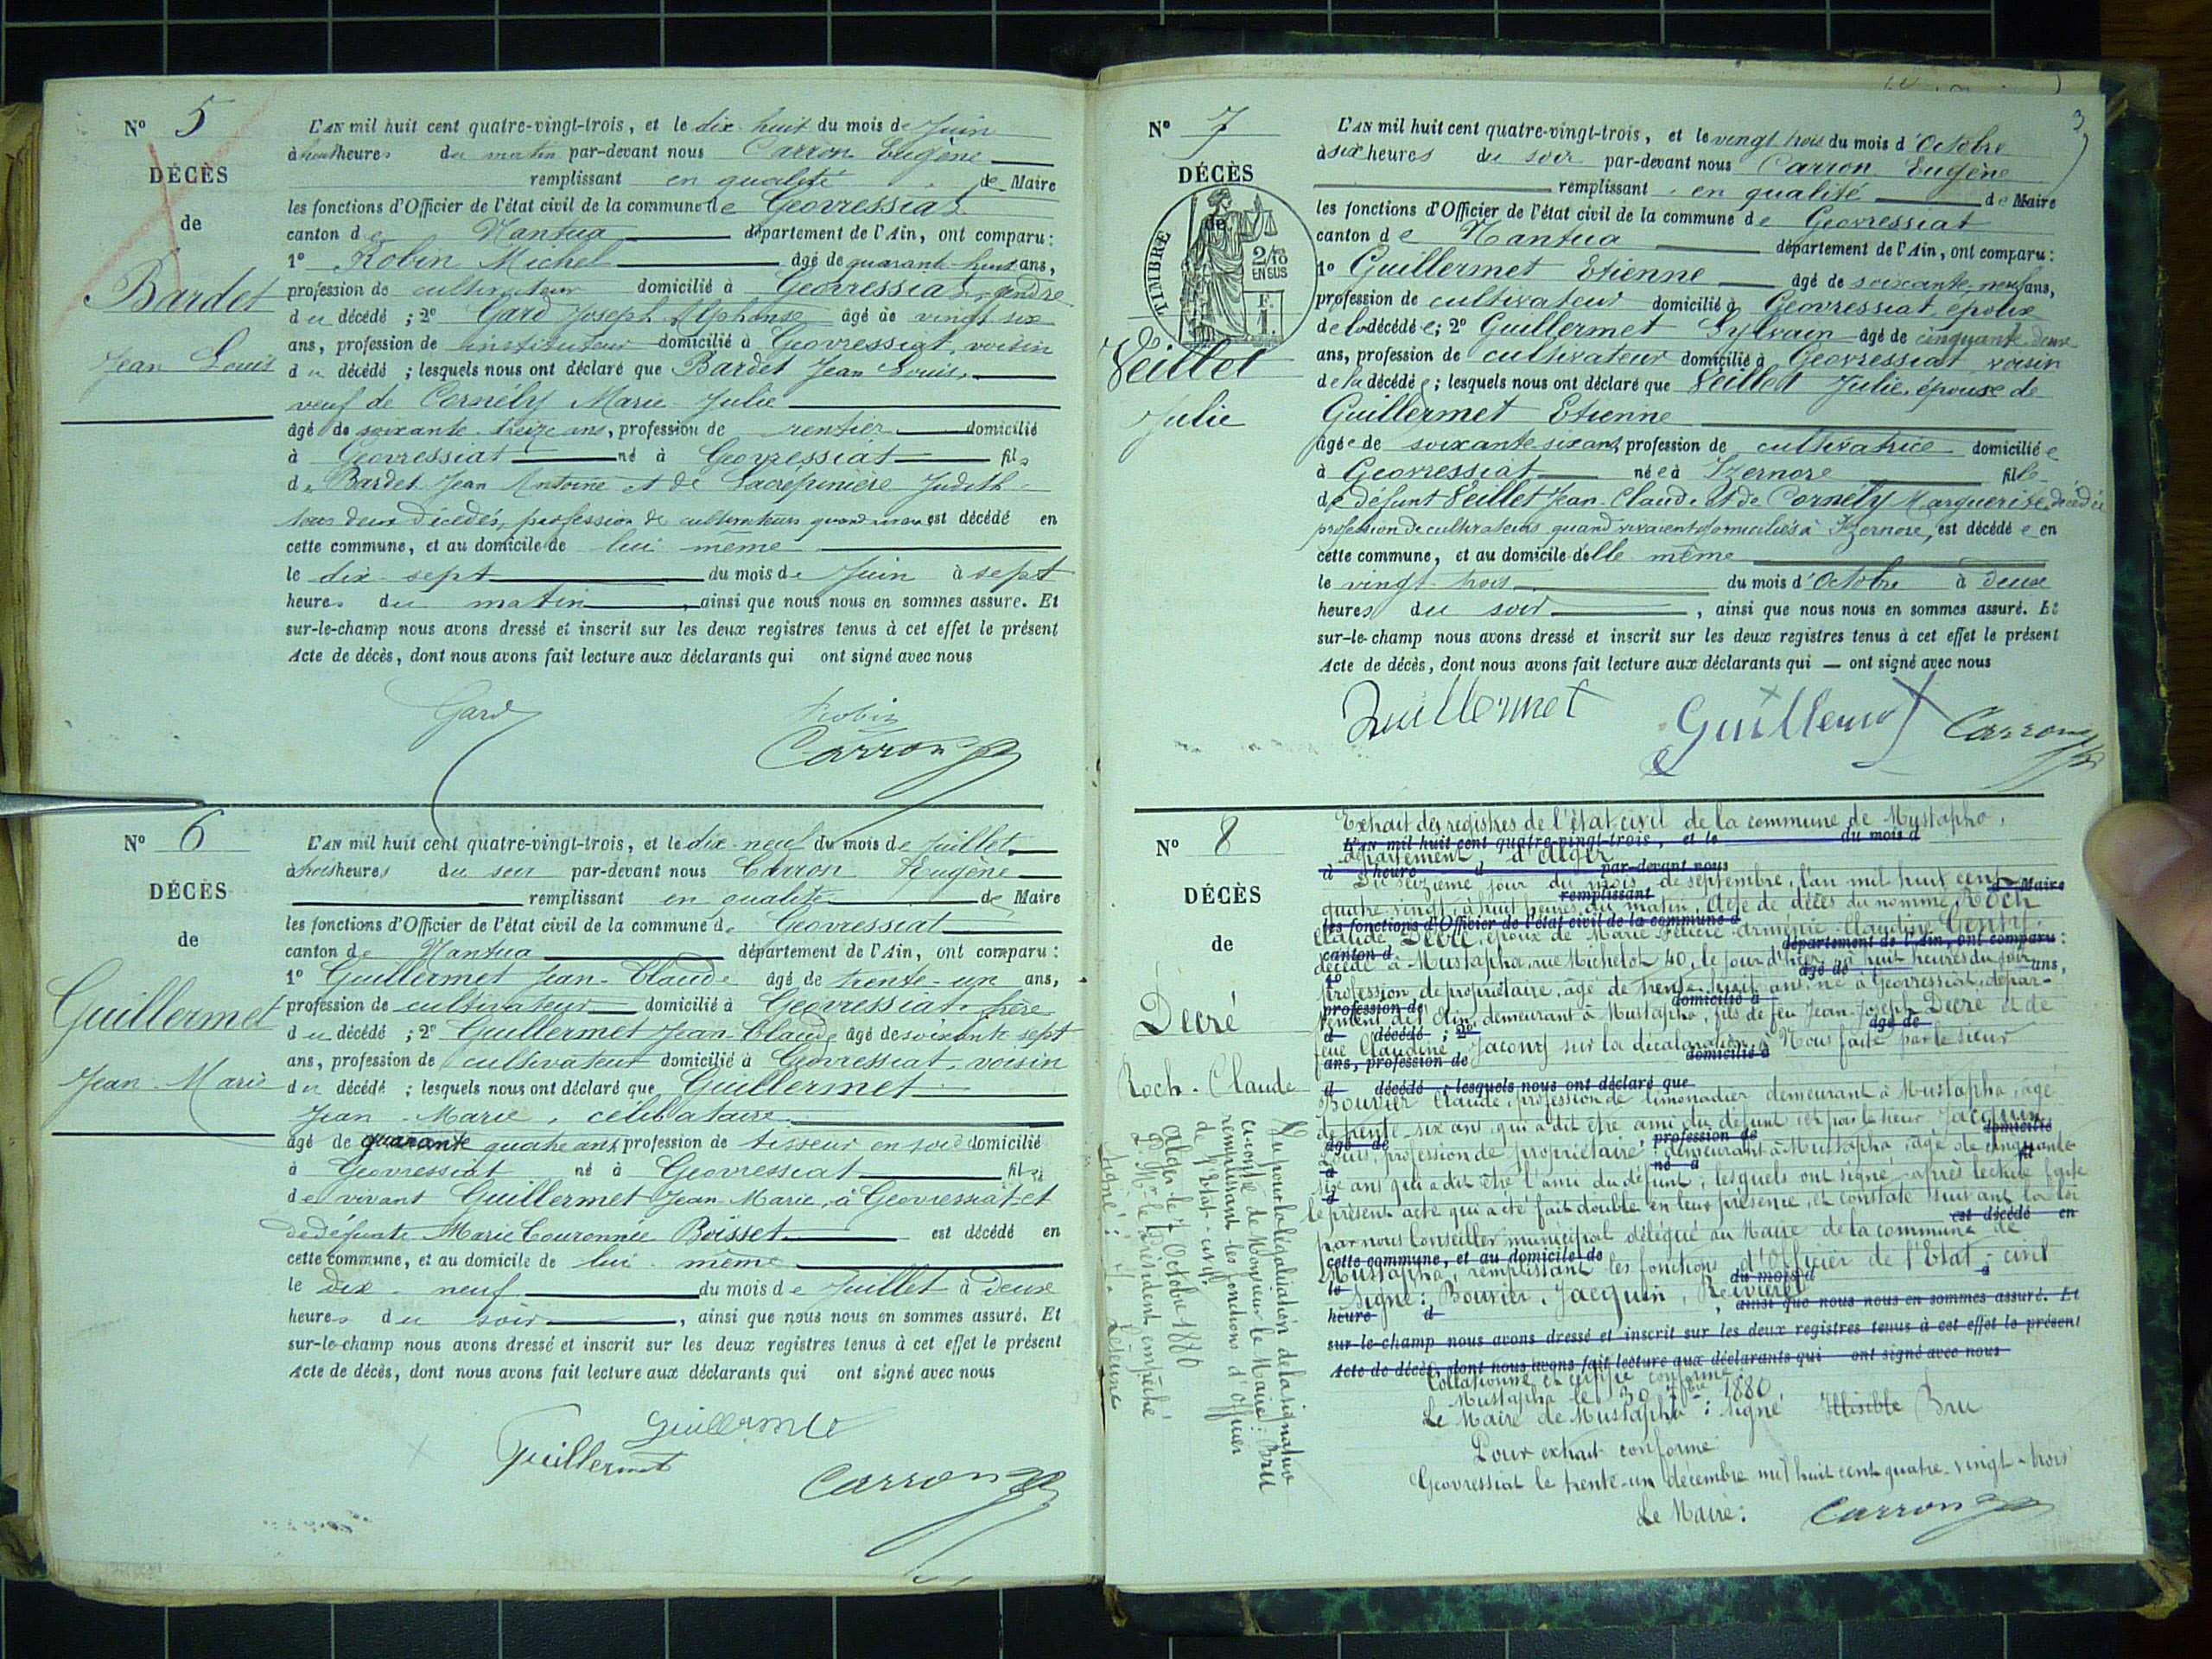 N° 5
DÉCÈS
de
Bardet
Jean Louis
L'AN mil huit cent quatre-vingt-trois, et le dix huit du mois de Juin
à huit heures du matin par-devant nous Carron Eugène
remplissant en qualité de Maire
les fonctions d'Officier de l'état civil de la commune de Geovressiat
canton de Nantua département de l'Ain, ont comparu :
1° Robin Michel âgé de quarante-huit ans,
profession de cultivateur domicilié à Geovressiat, gendre
du décédé ; 2° Gard Joseph Alphonse âgé de vingt six
ans, profession de instituteur domicilié à Geovressiat, voisin
du décédé ; lesquels nous ont déclaré que Bardet Jean Louis,
veuf de Cornély Marie Julie
âgé de soixante treize ans, profession de rentier domicilié
à Geovressiat né à Geovressiat fils
de Bardet Jean Antoine et de Lacrépinière Judith
tous deux décédés, profession de cultivateurs quand est décédé en
cette commune, et au domicile de lui même
le dix-sept du mois de Juin à sept
heures du matin, ainsi que nous nous en sommes assuré. Et
sur-le-champ nous avons dressé et inscrit sur les deux registres tenus à cet effet le présent
Acte de décès, dont nous avons fait lecture aux déclarants qui ont signé avec nous
Gard Robin
Carron
N° 6
DÉCÈS
de
Guillermet
Jean-Marie
L'AN mil huit cent quatre-vingt-trois, et le dix-neuf du mois de Juillet
à trois heures du soir par-devant nous Carron Eugène
remplissant en qualité de Maire
les fonctions d'Officier de l'état civil de la commune de Geovressiat
canton de Nantua département de l'Ain, ont comparu :
1° Guillermet Jean-Claude âgé de trente-un ans,
profession de cultivateur domicilié à Geovressiat, frère
du décédé ; 2° Guillermet Jean-Claude âgé de soixante sept
ans, profession de cultivateur domicilié à Geovressiat, voisin
du décédé ; lesquels nous ont déclaré que Guillermet
Jean-Marie, célibataire
âgé de quarante quatre ans, profession de tisseur en soie domicilié
à Geovressiat né à Geovressiat fils
de vivant Guillermet Jean-Marie, à Geovressiat et
de défunte Marie Couronnée Boisset est décédé en
cette commune, et au domicile de lui-même
le dix-neuf du mois de Juillet à deux
heures du soir, ainsi que nous nous en sommes assuré. Et
sur-le-champ nous avons dressé et inscrit sur les deux registres tenus à cet effet le présent
Acte de décès, dont nous avons fait lecture aux déclarants qui ont signé avec nous
Guillermet
Guillermet
Carron
3
N° 7
DÉCÈS
de
TIMBRE
2/10
EN SUS
F.
1.
Veillet
Julie
L'AN mil huit cent quatre-vingt-trois, et le vingt trois du mois d'Octobre
à six heures du soir par-devant nous Carron Eugène
remplissant en qualité de Maire
les fonctions d'Officier de l'état civil de la commune de Geovressiat
canton de Nantua département de l'Ain, ont comparu :
1° Guillermet Etienne âgé de soixante-neuf ans,
profession de cultivateur domicilié à Geovressiat, époux
de la décédée ; 2° Guillermet Sylvain âgé de cinquante-deux
ans, profession de cultivateur domicilié à Geovressiat voisin
de la décédée ; lesquels nous ont déclaré que Veillet Julie, épouse de
Guillermet Etienne
âgée de soixante-six ans, profession de cultivatrice domiciliée
à Geovressiat née à Izernore fille
de défunt Veillet Jean-Claude et de Cornély Marguerite, décédée
profession de cultivateurs quand vivaient domiciliés à Izernore, est décédée en
cette commune, et au domicile d'elle même
le vingt-trois du mois d'Octobre à deux
heures du soir, ainsi que nous nous en sommes assuré. Et
sur-le-champ nous avons dressé et inscrit sur les deux registres tenus à cet effet le présent
Acte de décès, dont nous avons fait lecture aux déclarants qui — ont signé avec nous
Guillermet Guillermet Carron
N° 8
DÉCÈS
de
Decré
Roch-Claude
Extrait des registres de l'état civil de la commune de Mustapha,
L'AN mil huit cent quatre-vingt-trois, et le du mois d
département d'Alger
à heure d par-devant nous
Du seizième jour du mois de septembre, l'an mil huit cent
remplissant d Maire
quatre vingt, à huit heures du matin, Acte de décès du nommé Roch
les fonctions d'Officier de l'état civil de la commune d
Claude Decré, époux de Marie Arménie Claudine Genty,
canton d département de l'Ain, ont comparu :
décédé à Mustapha, rue Michelet 40, le jour d'hier, à huit heures du soir
1° âgé de ans,
profession de propriétaire, âgé de trente-huit ans, né à Geovressiat, dépar-
profession de domicilié à
tement de l'Ain, demeurant à Mustapha, fils de feu Jean-Joseph Decré et de
d décédé ; 2° âgé de
feue Claudine Jacony sur la déclaration à Nous faite par le sieur
ans, profession de domicilié à
d décédé ; lesquels nous ont déclaré que
Bouvier Claude, profession de limonadier demeurant à Mustapha, âgé
de trente-six ans, qui a dit être ami du défunt et par le sieur Jacquin
âgé de profession de domicilié
Louis, profession de propriétaire, demeurant à Mustapha, âgé de cinquante
à né à fil
six ans qui a dit être l'ami du défunt, lesquels ont signé, après lecture faite
d
le présent acte qui a été fait double en leur présence, et constaté suivant la loi
est décédé en
par nous Conseiller municipal délégué au Maire de la commune de
cette commune, et au domicile de
Mustapha, remplissant les fonctions d'Officier de l'Etat-civil
le du mois d à
Signé : Bouvier, Jacquin,
heure d , ainsi que nous nous en sommes assuré. Et
sur-le-champ nous avons dressé et inscrit sur les deux registres tenus à cet effet le présent
Acte de décès, dont nous avons fait lecture aux déclarants qui ont signé avec nous
Collationné et certifié conforme,
Mustapha le 30 7bre 1880,
Le Maire de Mustapha : signé Illisible Bru
Pour extrait conforme
Geovressiat le trente-un décembre mil huit cent quatre-vingt-trois
Le Maire : Carron
Vu pour la légalisation de la signature
ci-contre de Monsieur le Maire : Bru
remplissant les fonctions d'Officier
de l'Etat-civil
Alger le 7 Octobre 1880
P. Mr le Président empêché
Signé : Lejeune